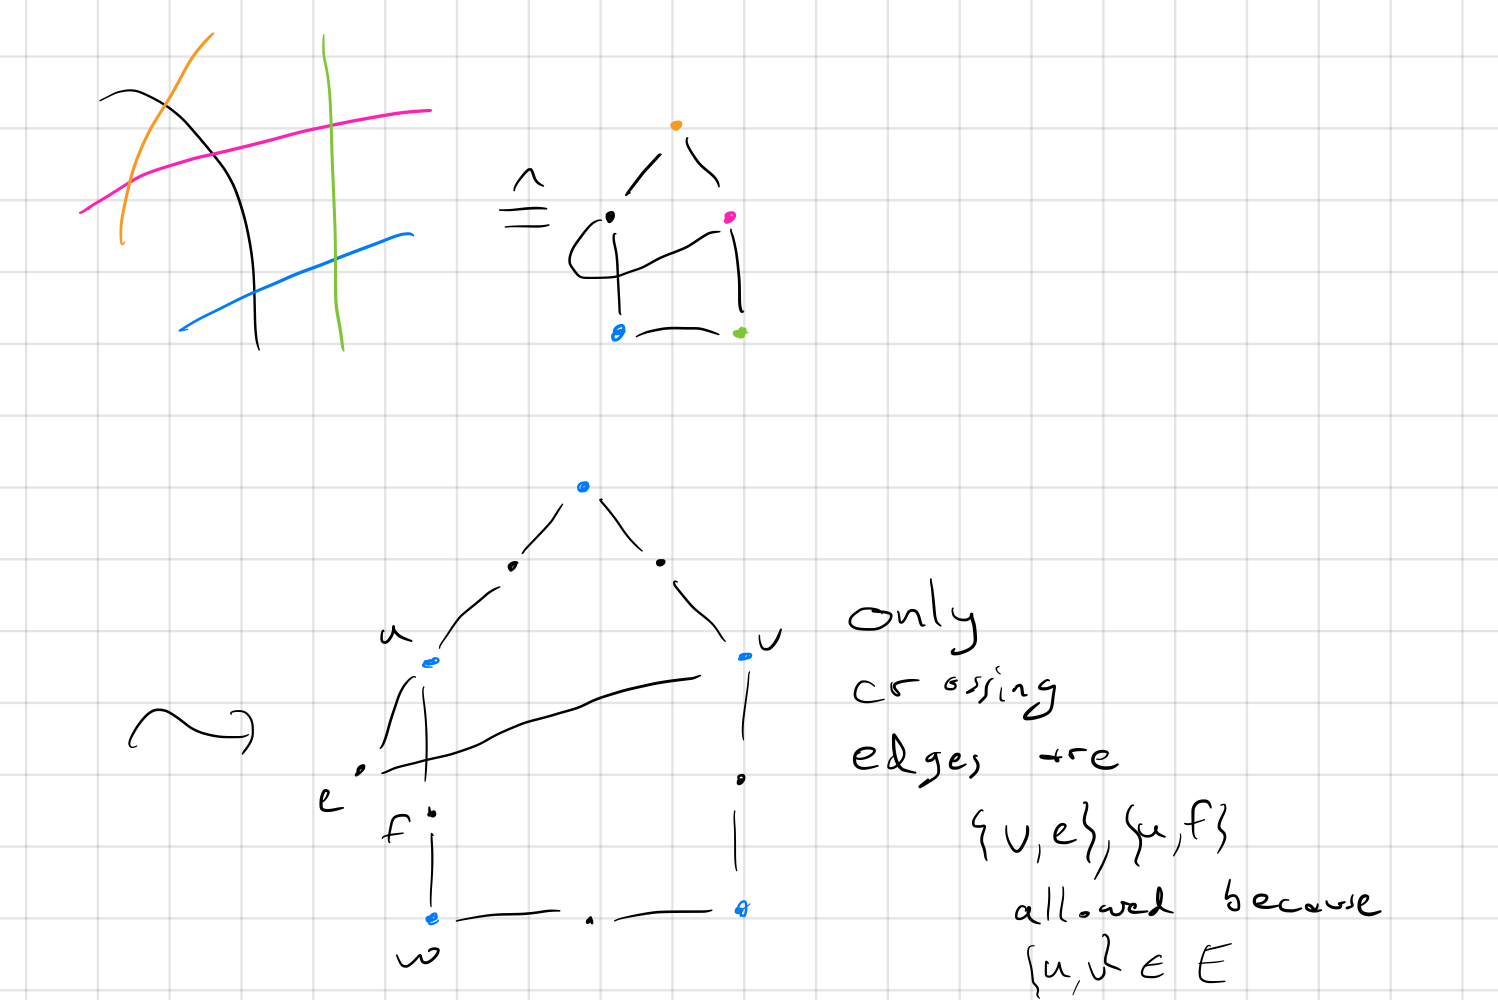 ≙
u
v
e
f
w
only
crossing
edges are
{v,e},{u,f}
allowed because
{u,v} ∈ E